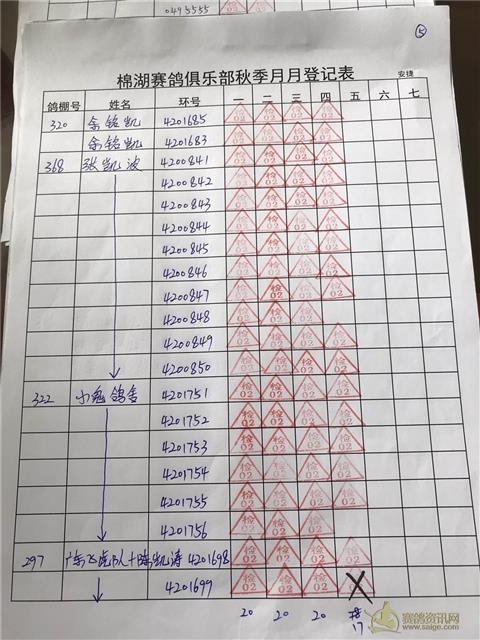 0495555
⑤
棉湖赛鸽俱乐部秋季月月登记表
安捷
鸽棚号 姓名 环号 一 二 三 四 五 六 七
320 余铭凯 4201685 检02 检02 检02 检02
余铭凯 4201683 检02 检02 检02 检02
368 张凯波 4200841 检02 检02 检02 检02
4200842 检02 检02 检02 检02
4200843 检02 检02 检02 检02
4200844 检02 检02 检02 检02
4200845 检02 检02 检02 检02
4200846 检02 检02 检02 检02
4200847 检02 检02 检02 检02
4200848 检02 检02 检02
4200849 检02 检02 检02 检02
4200850 检02 检02 检02 检02
322 小鬼鸽舍 4201751 检02 检02 检02 检02
4201752 检02 检02 检02 检02
4201753 检02 检02 检02 检02
4201754 检02 检02 检02 检02
4201755 检02 检02 检02 检02
4201756 检02 检02 检02
297 飞虎队+陈凯涛 4201698 检02 检02 检02 检02
4201699 检02 检02 检02 X
20 20 20 17
赛鸽资讯网
www.saige.com